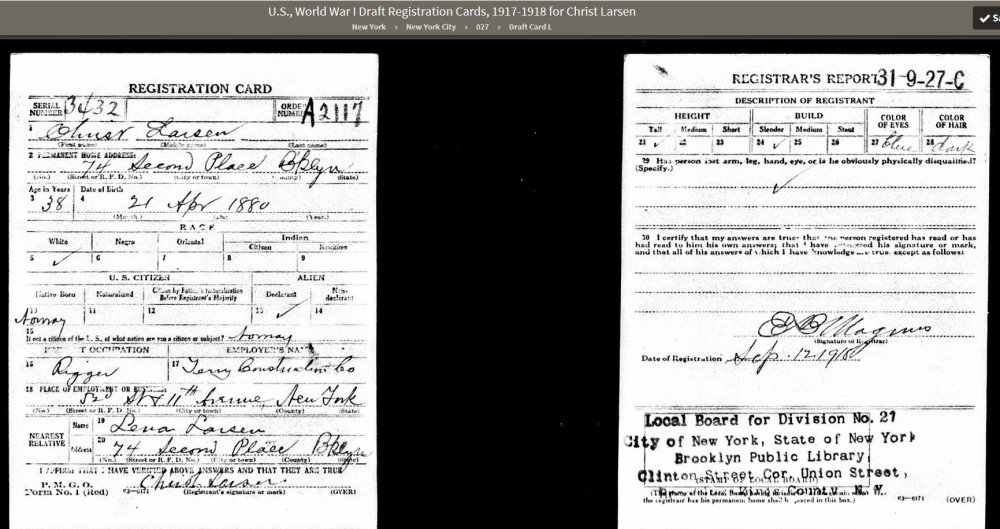 U.S., World War I Draft Registration Cards, 1917-1918 for Christ Larsen
New York > New York City > 027 > Draft Card L
REGISTRATION CARD
SERIAL NUMBER 3432 ORDER NUMBER A2117
1 Christ Larsen
(First name) (Middle name) (Last name)
2 PERMANENT HOME ADDRESS:
74 Second Place Bklyn
(No.) (Street or R. F. D. No.) (City or town) (County) (State)
Age in Years Date of Birth
3 38 4 21 Apr 1880
(Month.) (Day.) (Year.)
RACE
White Negro Oriental Indian
Citizen Noncitizen
5 ✓ 6 7 8 9
U. S. CITIZEN ALIEN
Native Born Naturalized Citizen by Father's Naturalization Before Registrant's Majority Declarant Non-declarant
10 11 12 13 ✓ 14
Norway
15
If not a citizen of the U. S., of what nation are you a citizen or subject? Norway
PRESENT OCCUPATION EMPLOYER'S NAME
16 Rigger 17 Terry Construction Co
18 PLACE OF EMPLOYMENT OR BUSINESS:
52d St & 11th Avenue, New York
(No.) (Street or R. F. D. No.) (City or town) (County) (State)
NEAREST RELATIVE
Name 19 Lena Larsen
Address 20 74 Second Place Bklyn
(No.) (Street or R. F. D. No.) (City or town) (County) (State)
I AFFIRM THAT I HAVE VERIFIED ABOVE ANSWERS AND THAT THEY ARE TRUE
P. M. G. O.
Form No. 1 (Red) c3-6171 Christ Larsen (OVER)
(Registrant's signature or mark)
REGISTRAR'S REPORT 31-9-27-C
DESCRIPTION OF REGISTRANT
HEIGHT BUILD COLOR OF EYES COLOR OF HAIR
Tall Medium Short Slender Medium Stout
21 ✓ 22 23 24 ✓ 25 26 27 blue 28 dark
29 Has person lost arm, leg, hand, eye, or is he obviously physically disqualified?
(Specify.)
✓
30 I certify that my answers are true; that the person registered has read or has
had read to him his own answers; that I have witnessed his signature or mark,
and that all of his answers of which I have knowledge are true, except as follows:
E B Magnus
(Signature of Registrar)
Date of Registration Sep. 12 1918
Local Board for Division No. 27
City of New York, State of New York
Brooklyn Public Library
Clinton Street Cor. Union Street,
(STAMP OF LOCAL BOARD)
Kings County, N. Y.
the registrant has his permanent home shall be placed in this box.)
c3-6171 (OVER)